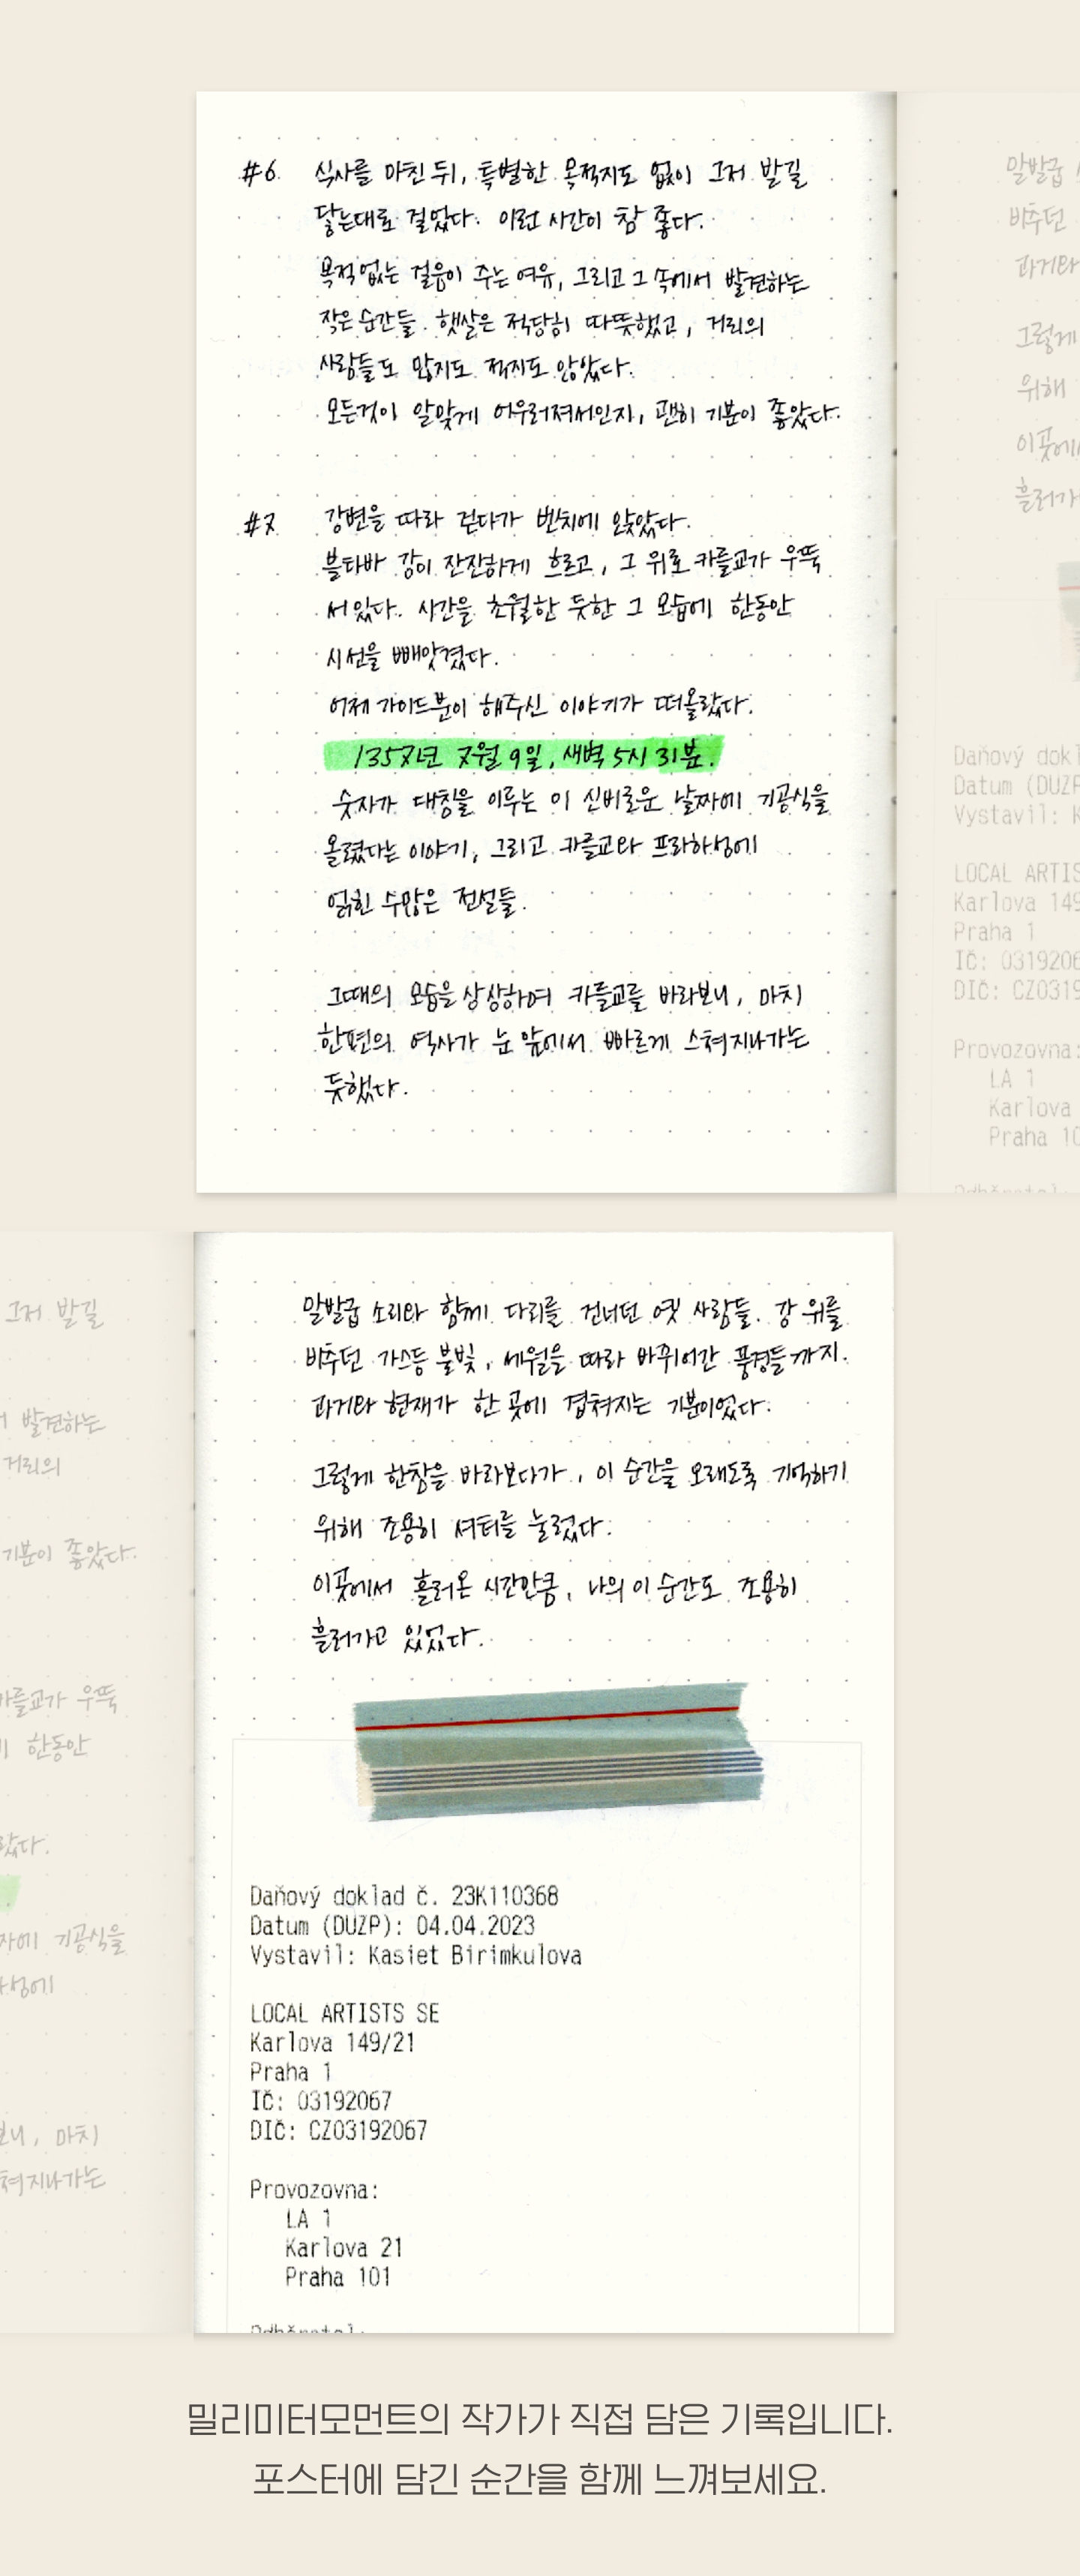 #6 식사를 마친 뒤, 특별한 목적지도 없이 그저 발길
닿는대로 걸었다. 이런 시간이 참 좋다.
목적없는 걸음이 주는 여유, 그리고 그 속에서 발견하는
작은 순간들. 햇살은 적당히 따뜻했고, 거리의
사람들도 많지도 적지도 않았다.
모든것이 알맞게 어우러져서인지, 괜히 기분이 좋았다.
#7 강변을 따라 걷다가 벤치에 앉았다.
블타바 강이 잔잔하게 흐르고, 그 위로 카를교가 우뚝
서있다. 시간을 초월한 듯한 그 모습에 한동안
시선을 빼앗겼다.
어제 가이드분이 해주신 이야기가 떠올랐다.
1357년 7월 9일, 새벽 5시 31분.
숫자가 대칭을 이루는 이 신비로운 날짜에 기공식을
올렸다는 이야기, 그리고 카를교와 프라하성에
얽힌 수많은 전설들.
그때의 모습을 상상하며 카를교를 바라보니, 마치
한편의 역사가 눈 앞에서 빠르게 스쳐지나가는
듯했다.
말발굽
비추던
과거와
그렇게
위해
이곳에
흘러가
Daňový dokl
Datum (DUZP
Vystavil: K
LOCAL ARTIS
Karlova 149
Praha 1
IČ: 0319206
DIČ: CZ0319
Provozovna:
LA 1
Karlova
Praha 10
그저 발길
발견하는
거리의
기분이 좋았다.
카를교가 우뚝
한동안
랐다.
기공식을
하성에
보니, 마치
스쳐지나가는
말발굽 소리와 함께 다리를 건너던 옛 사람들. 강 위를
비추던 가스등 불빛, 세월을 따라 바뀌어간 풍경들까지.
과거와 현재가 한 곳에 겹쳐지는 기분이었다.
그렇게 한참을 바라보다가, 이 순간을 오래도록 기억하기
위해 조용히 셔터를 눌렀다.
이곳에서 흘러온 시간만큼, 나의 이 순간도 조용히
흘러가고 있었다.
Daňový doklad č. 23K110368
Datum (DUZP): 04.04.2023
Vystavil: Kasiet Birimkulova
LOCAL ARTISTS SE
Karlova 149/21
Praha 1
IČ: 03192067
DIČ: CZ03192067
Provozovna:
LA 1
Karlova 21
Praha 101
밀리미터모먼트의 작가가 직접 담은 기록입니다.
포스터에 담긴 순간을 함께 느껴보세요.